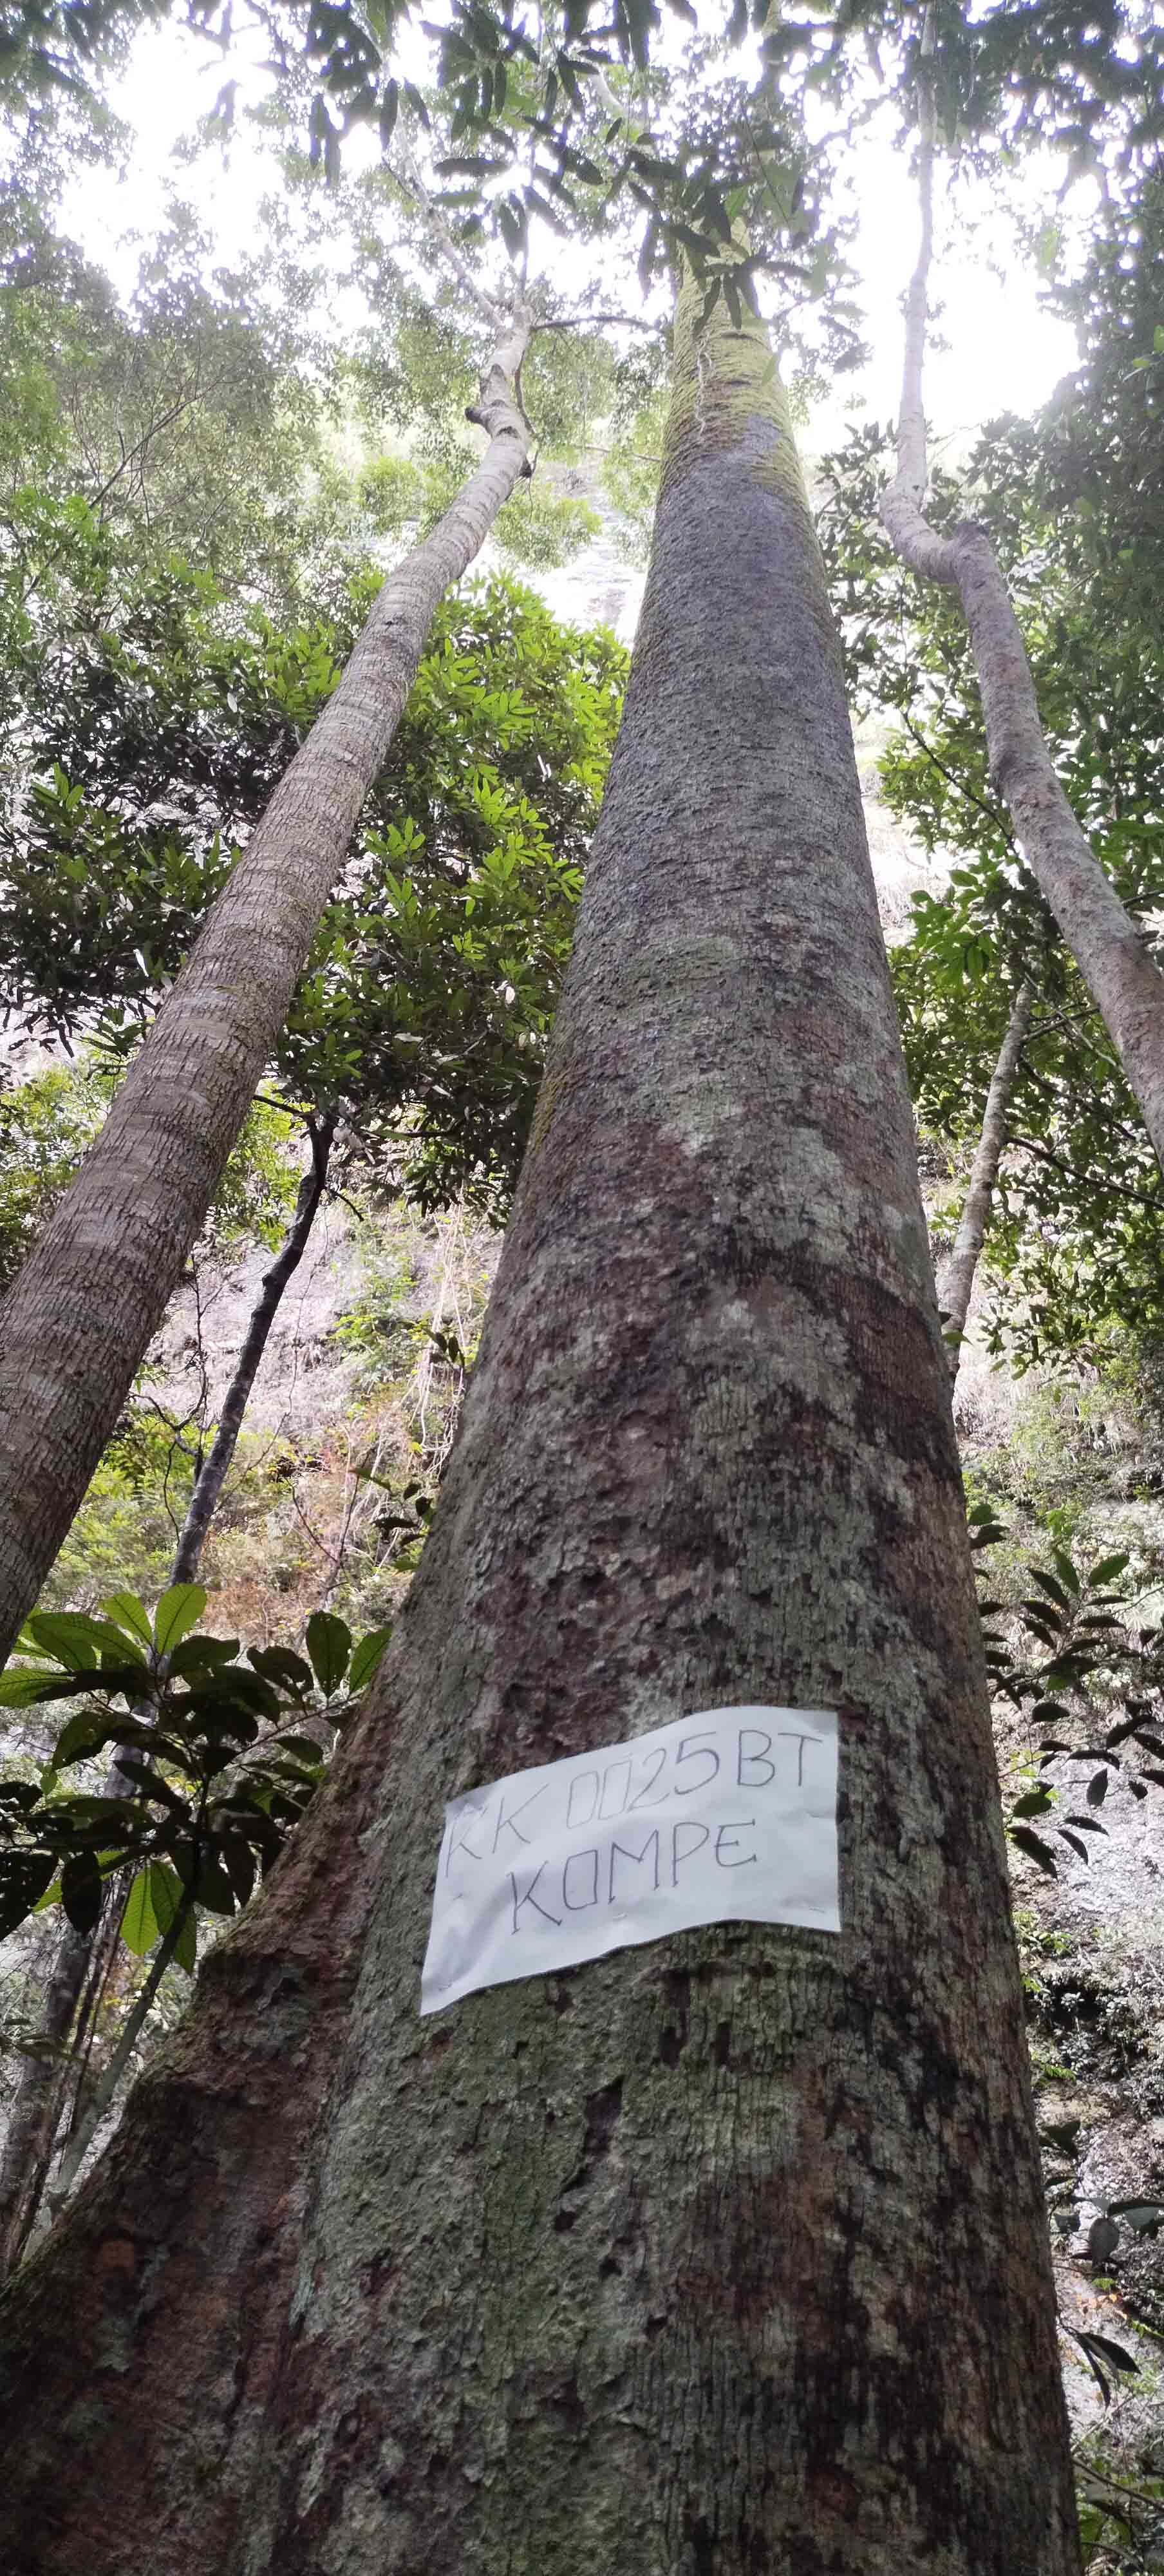 KK 0025 BT
KOMPE